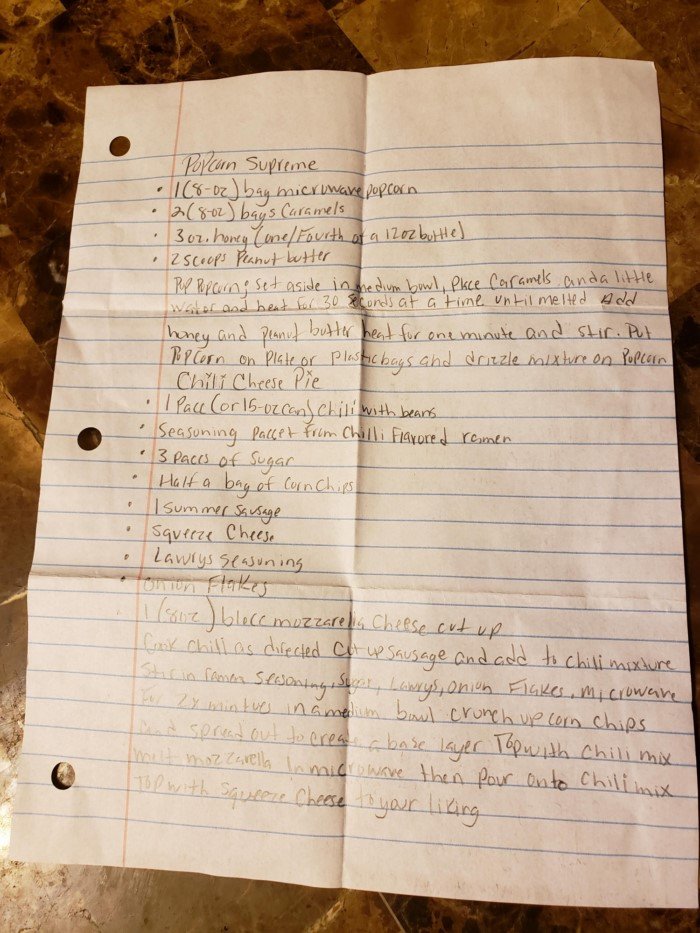 Popcorn Supreme
• 1 (8-oz) bag microwave popcorn
• 2 (8-oz) bags Caramels
• 3 oz. honey (one/Fourth of a 12oz bottle)
• 2 scoops Peanut butter
Pop Popcorn; set aside in medium bowl, Place Caramels and a little
water and heat for 30 seconds at a time until melted Add
honey and peanut butter heat for one minute and stir. Put
PopCorn on Plate or Plastic bags and drizzle mixture on Popcorn
Chili Cheese Pie
• 1 Pacc (or 15-oz can) chili with beans
• Seasoning Paccet from Chilli Flavored ramen
• 3 Paccs of Sugar
• Half a bag of Corn Chips
• 1 Summer Sausage
• Squeeze Cheese
• Lawrys Seasoning
• Onion Flakes
1 (8oz) blocc mozzarella Cheese cut up
Cook chili as directed Cut up Sausage and add to chili mixture
Stir in ramen Seasoning, Sugar, Lawrys, onion Flakes, microwave
For 2x mintues in a medium bowl crunch up corn chips
and spread out to create a base layer Top with Chili mix
melt mozzarella In microwave then pour onto Chili mix
Top with Squeeze Cheese to your liking